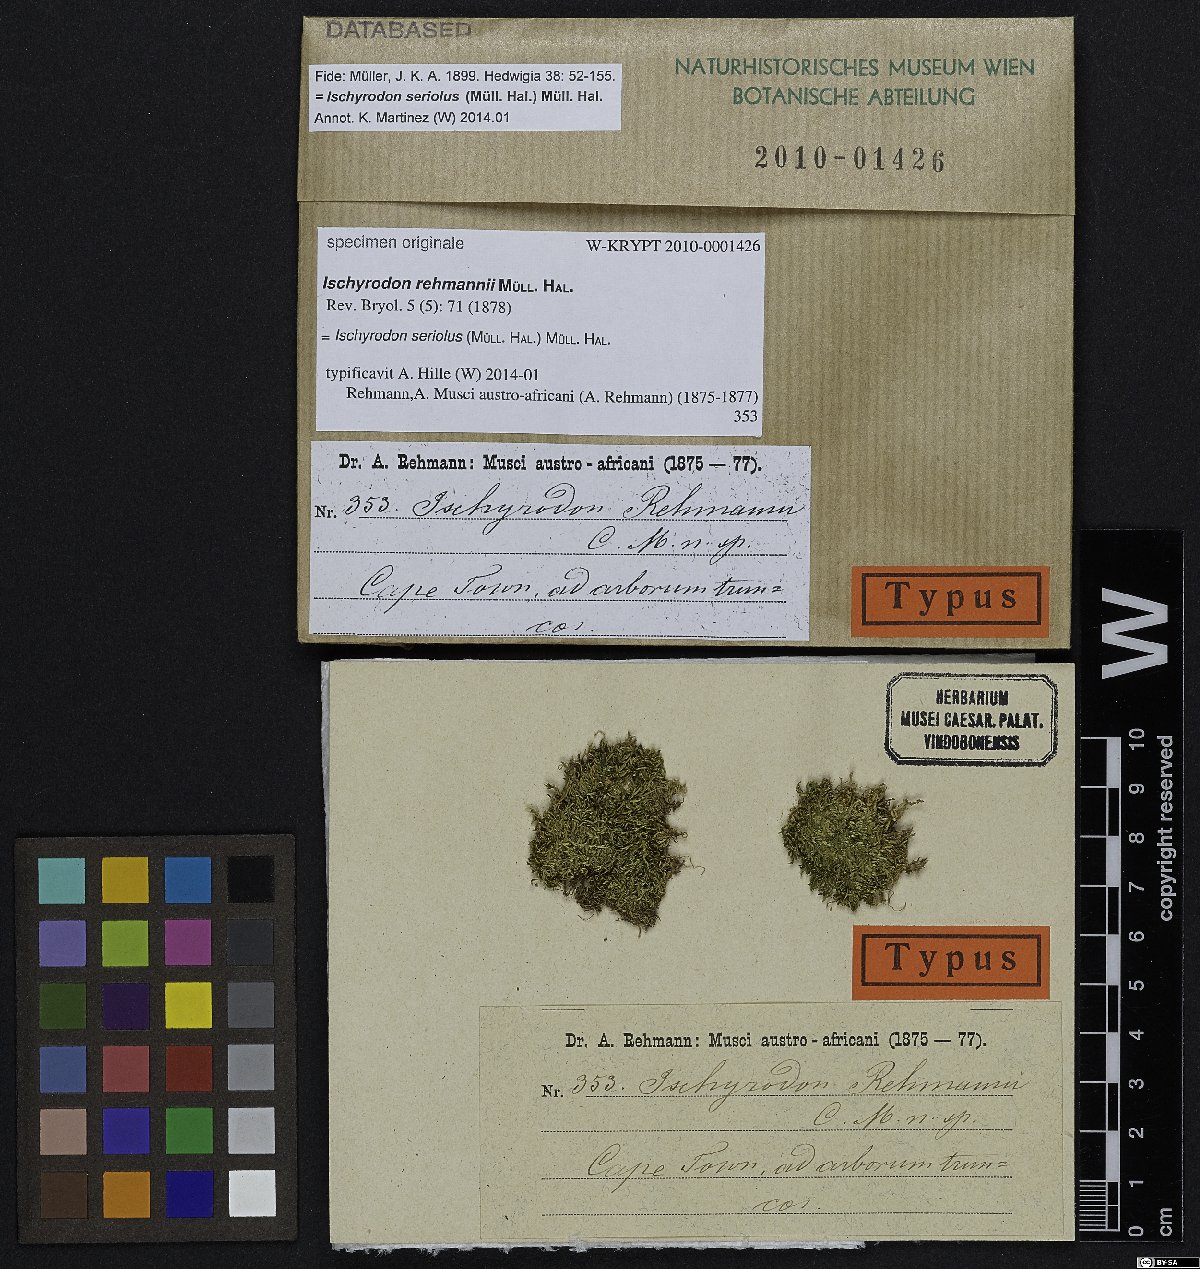 DATABASED
Fide: Müller, J. K. A. 1899. Hedwigia 38: 52-155.
= Ischyrodon seriolus (Müll. Hal.) Müll. Hal.
Annot. K. Martinez (W) 2014.01
NATURHISTORISCHES MUSEUM WIEN
BOTANISCHE ABTEILUNG
2010-01426
specimen originale W-KRYPT 2010-0001426
Ischyrodon rehmannii MÜLL. HAL.
Rev. Bryol. 5 (5): 71 (1878)
= Ischyrodon seriolus (MÜLL. HAL.) MÜLL. HAL.
typificavit A. Hille (W) 2014-01
Rehmann,A. Musci austro-africani (A. Rehmann) (1875-1877)
353
Dr. A. Rehmann: Musci austro-africani (1875 — 77).
Nr. 353. Ischyrodon Rehmanni
C. M. n. sp.
Cape Town, ad arborum trun=
cos.
Typus
HERBARIUM
MUSEI CAESAR. PALAT.
VINDOBONENSIS
Typus
Dr. A. Rehmann: Musci austro-africani (1875 — 77).
Nr. 353. Ischyrodon Rehmanni
C. M. n. sp.
Cape Town, ad arborum trun=
cos.
W
copyright reserved
10
9
8
7
6
5
4
3
2
1
0
cm
cc BY-SA